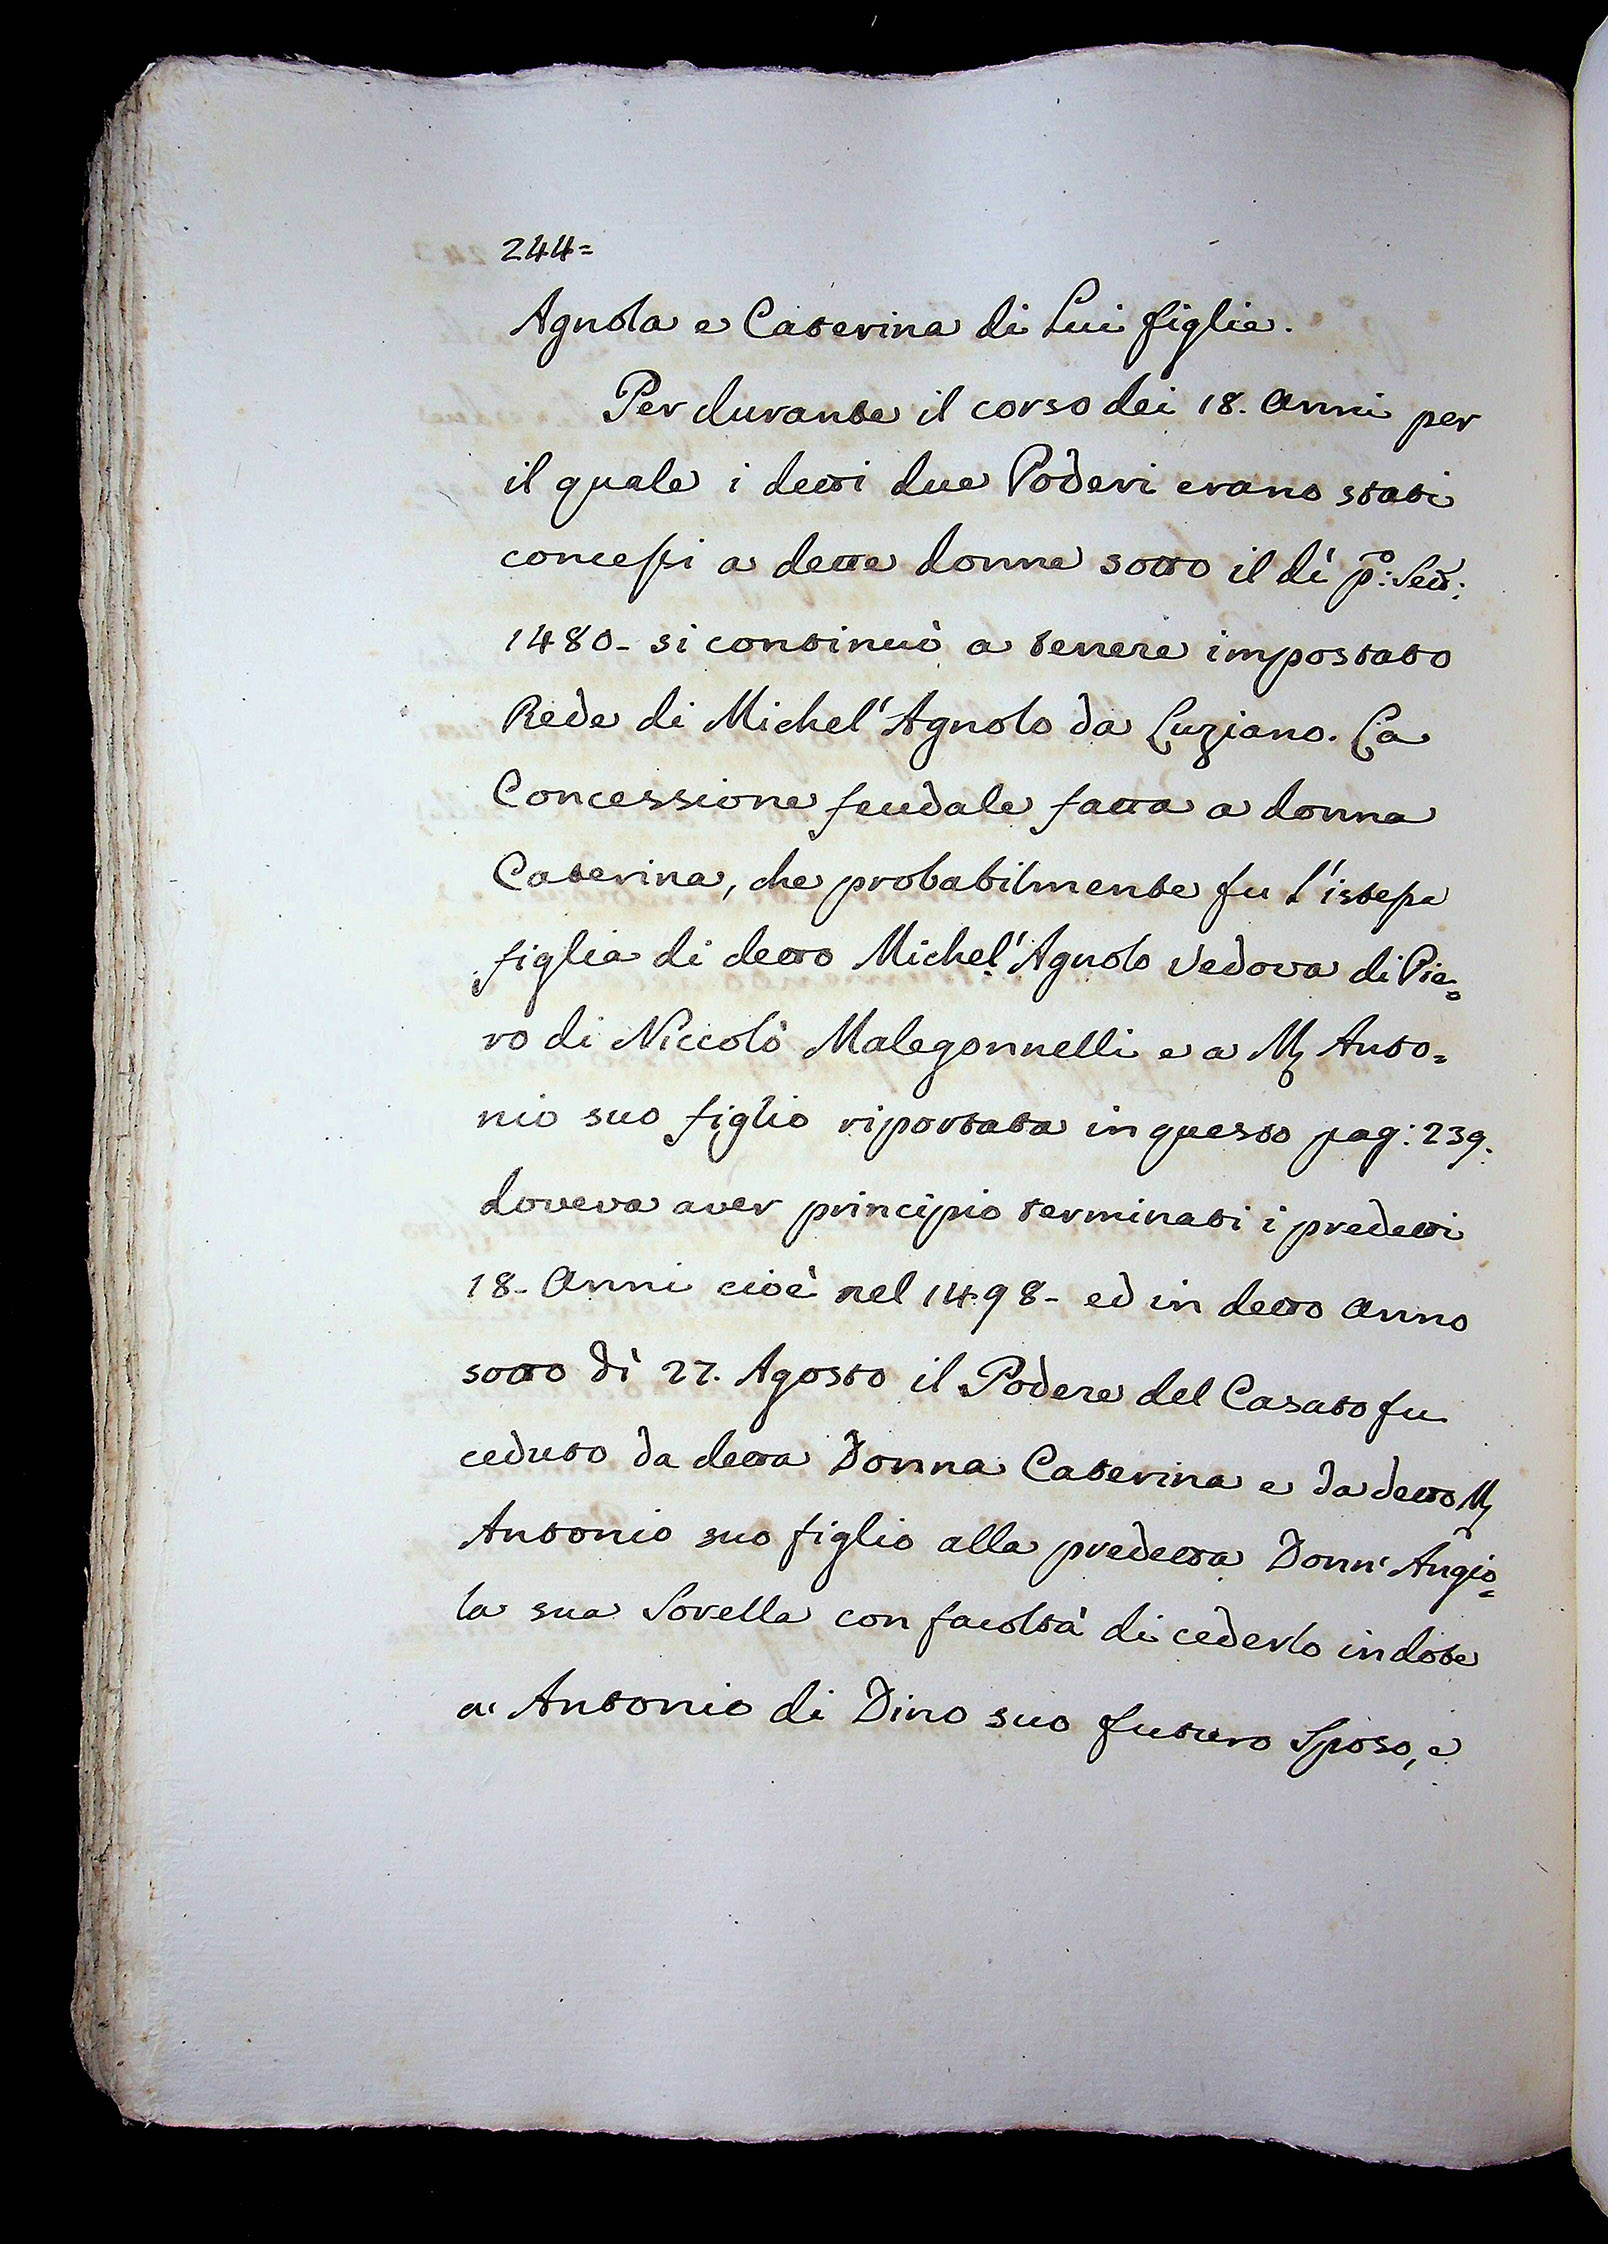 244=
Agnola e Caterina di Lui figlie.
Per durante il corso dei 18. Anni per
il quale i detti due Poderi erano stati
concessi a dette donne sotto il dì p.º: Set:
1480- si continuò a tenere impostato
Rede di Michel'Agnolo da Luziano. La
Concessione feudale fatta a donna
Caterina, che probabilmente fu l'istessa
figlia di detto Michel'Agnolo Vedova di Pie=
ro di Niccolò Malegonnelli e a M. Anto=
nio suo figlio riportata in questo pag: 239.
doveva aver principio terminati i predetti
18- Anni cioè nel 1498- ed in detto Anno
sotto dì 27. Agosto il Podere del Casato fu
ceduto da detta Donna Caterina e da detto M
Antonio suo figlio alla predetta Donn'Angio=
la sua Sorella con facoltà di cederlo in dote
a Antonio di Dino suo futuro Sposo, e